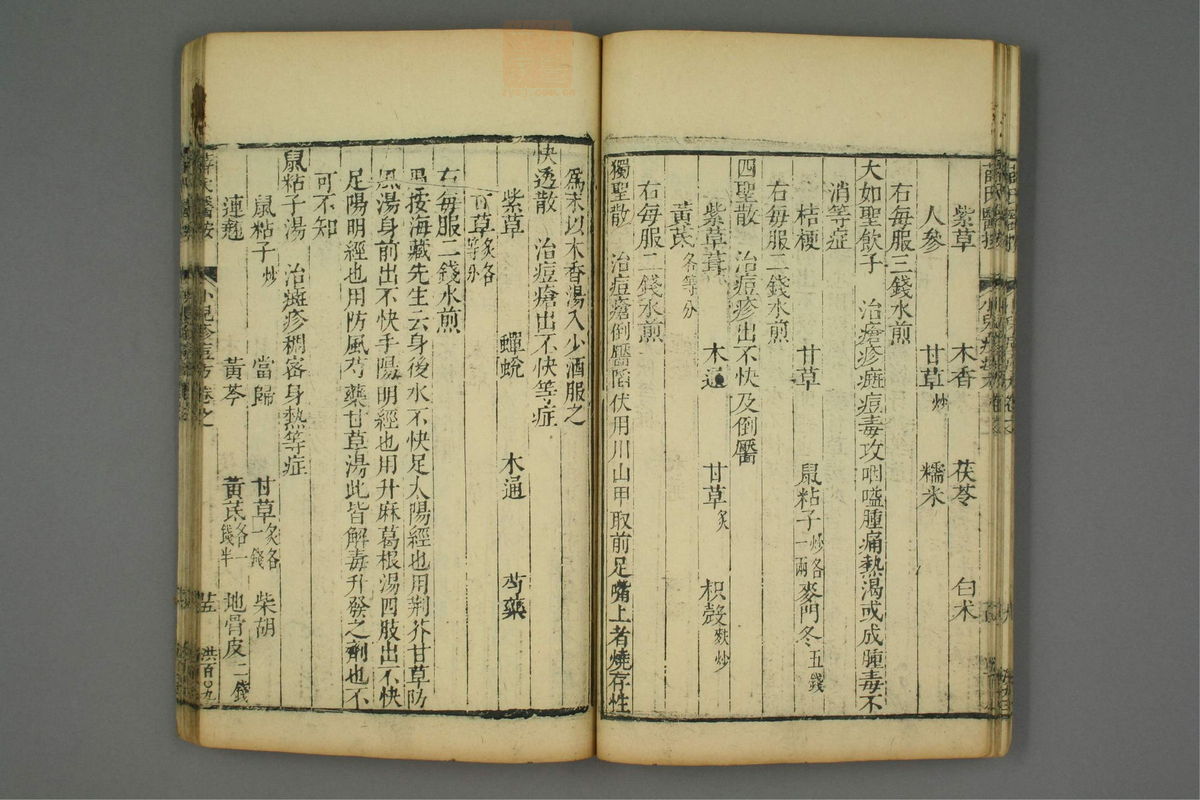 紫草　木香　茯苓　白术
人參　甘草炒　糯米
右每服三錢水煎
大如聖飲子　治瘡疹瘢痘毒攻咽嗌腫痛熱渴或成腫毒不
消等症
桔梗　甘草　鼠粘子炒各一兩　麥門冬五錢
右每服二錢水煎
四聖散　治痘疹出不快及倒靨
紫草茸　木通　甘草炙　枳殼麩炒
黃芪各等分
右每服二錢水煎
獨聖散　治痘瘡倒靨陷伏用川山甲取前足嘴上者燒存性
爲末以木香湯入少酒服之
快透散　治痘瘡出不快等症
紫草　蟬蛻　木通　芍藥
甘草炙各等分
右每服二錢水煎
愚按海藏先生云身後水不快足太陽經也用荆芥甘草防
風湯身前出不快手陽明經也用升麻葛根湯四肢出不快
足陽明經也用防風芍藥甘草湯此皆解毒升發之劑也不
可不知
鼠粘子湯　治斑疹稠密身熱等症
鼠粘子炒　當歸　甘草炙各一錢　柴胡
連翹　黃芩　黃芪各一錢半　地骨皮二錢
薛氏醫按　小兒痘疹方